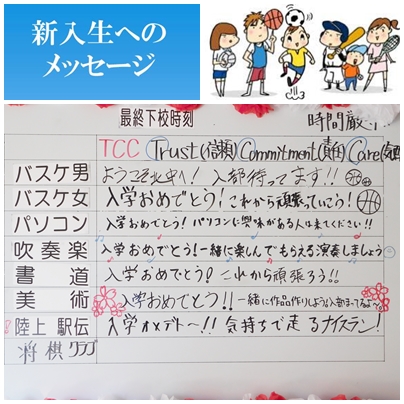 新入生への
メッセージ
最終下校時刻
時間厳守
TCC Trust(信頼) Commitment(責任) Care(気配
バスケ男 ようこそ北中へ! 入部待ってます!!
バスケ女 入学おめでとう! これから頑張っていこう!
パソコン 入学おめでとう! パソコンに興味がある人は来てください!!
吹奏楽 入学おめでとう! 一緒に楽しんでもらえる演奏しましょう
書道 入学おめでとう! これから頑張ろう!!
美術 入学おめでとう!! 一緒に作品作りしよう
陸上 駅伝 入学オメデトー!! 気持ちで走るナイスラン!
将棋クラブ